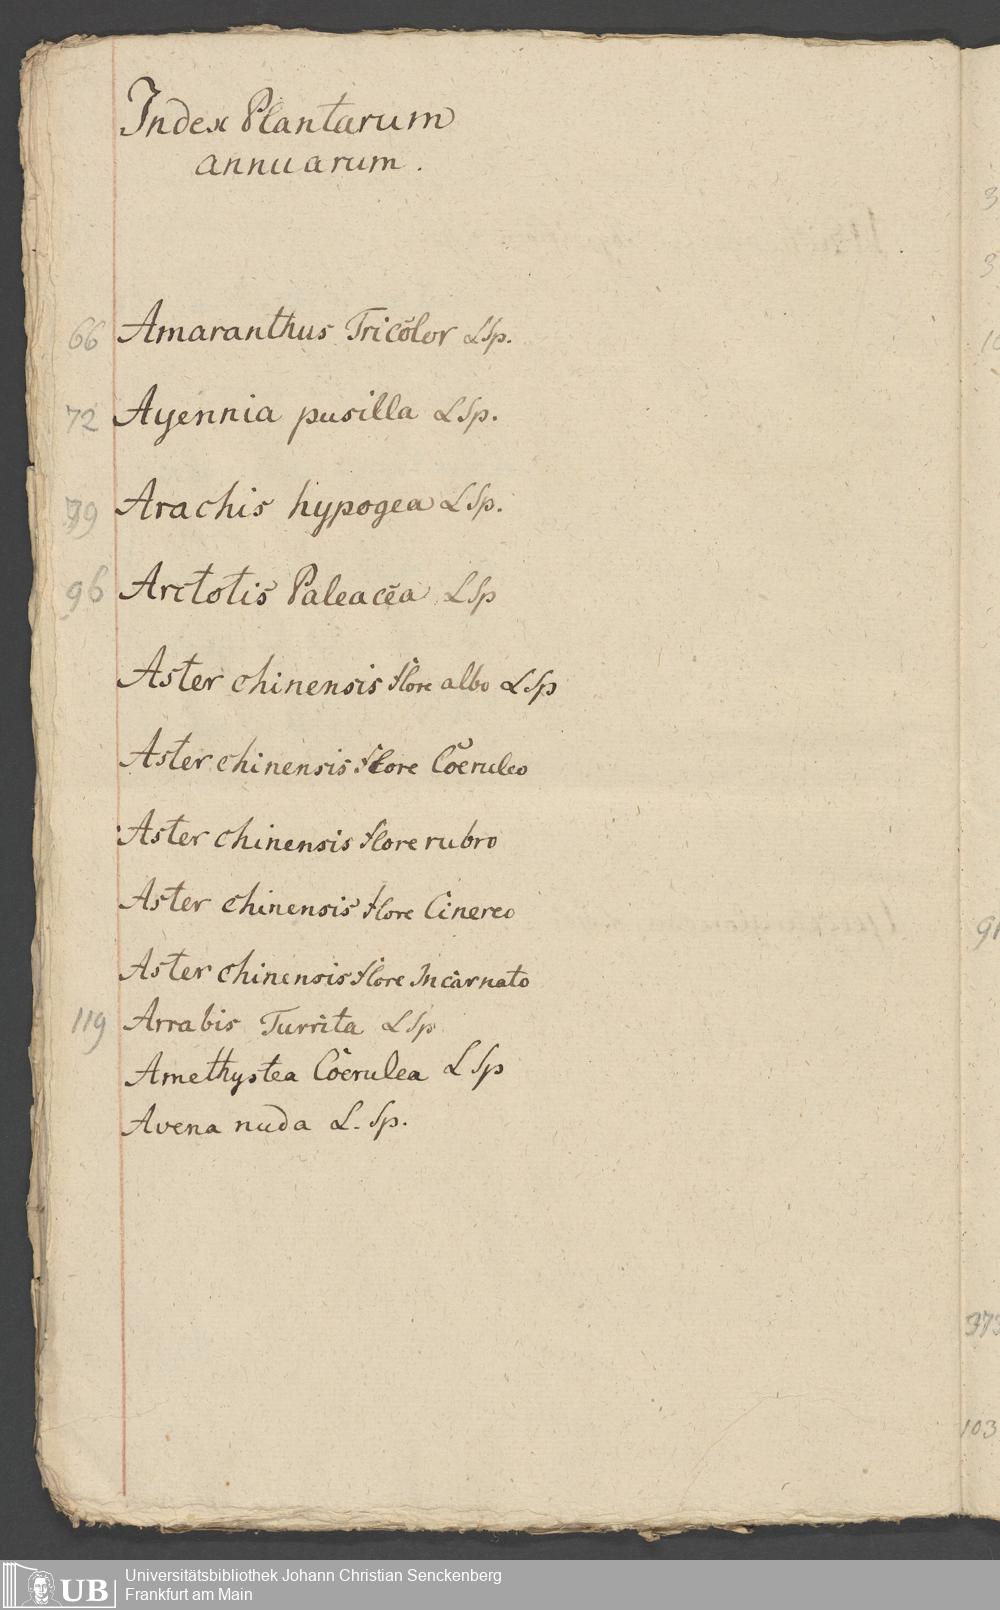 Index Plantarum
annuarum.
66 Amaranthus Tricolor LSp.
72 Ayennia pusilla LSp.
79 Arachis hypogea LSp.
96 Arctotis Paleacea LSp
Aster chinensis flore albo LSp
Aster chinensis flore Coeruleo
Aster chinensis flore rubro
Aster chinensis flore Cinereo
Aster chinensis flore Incarnato
119 Arrabis Turrita LSp
Amethystea Coerulea LSp
Avena nuda L. Sp.
103
UB Universitätsbibliothek Johann Christian Senckenberg
Frankfurt am Main